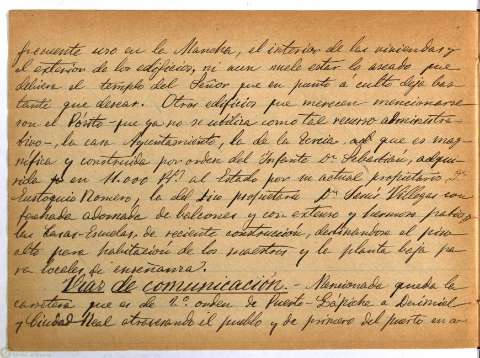 frecuente uso en la Mancha, el interior de las viviendas y
el exterior de los edificios, ni aun suele estar lo aseado que
debiera el templo del Señor que en punto á culto deja bas-
tante que desear. Otros edificios que merecen mencionarse
son el Pósito - que ya no se utiliza como tal recurso administra-
tivo -, la casa Ayuntamiento, la de la Tercia, que es mag-
nífica y construida por orden del Infante Dn. Sebastián, adqui-
rida en 11.000 Pts. al Estado por su actual propietario, Dn.
Eustoquio Romero, la del rico propietario Dn. Jesús Villegas con
fachada adornada de balcones y con extenso y hermoso patio, y
las Casas-Escuelas, de reciente construcción, destinándose el piso
alto para habitación de los maestros y la planta baja pa-
ra locales de enseñanza.
Vías de comunicación. - Mencionada queda la
carretera que es de 2º. orden de Puerto-Lápiche a Daimiel
y Ciudad Real atravesando el pueblo y de primero del puerto en